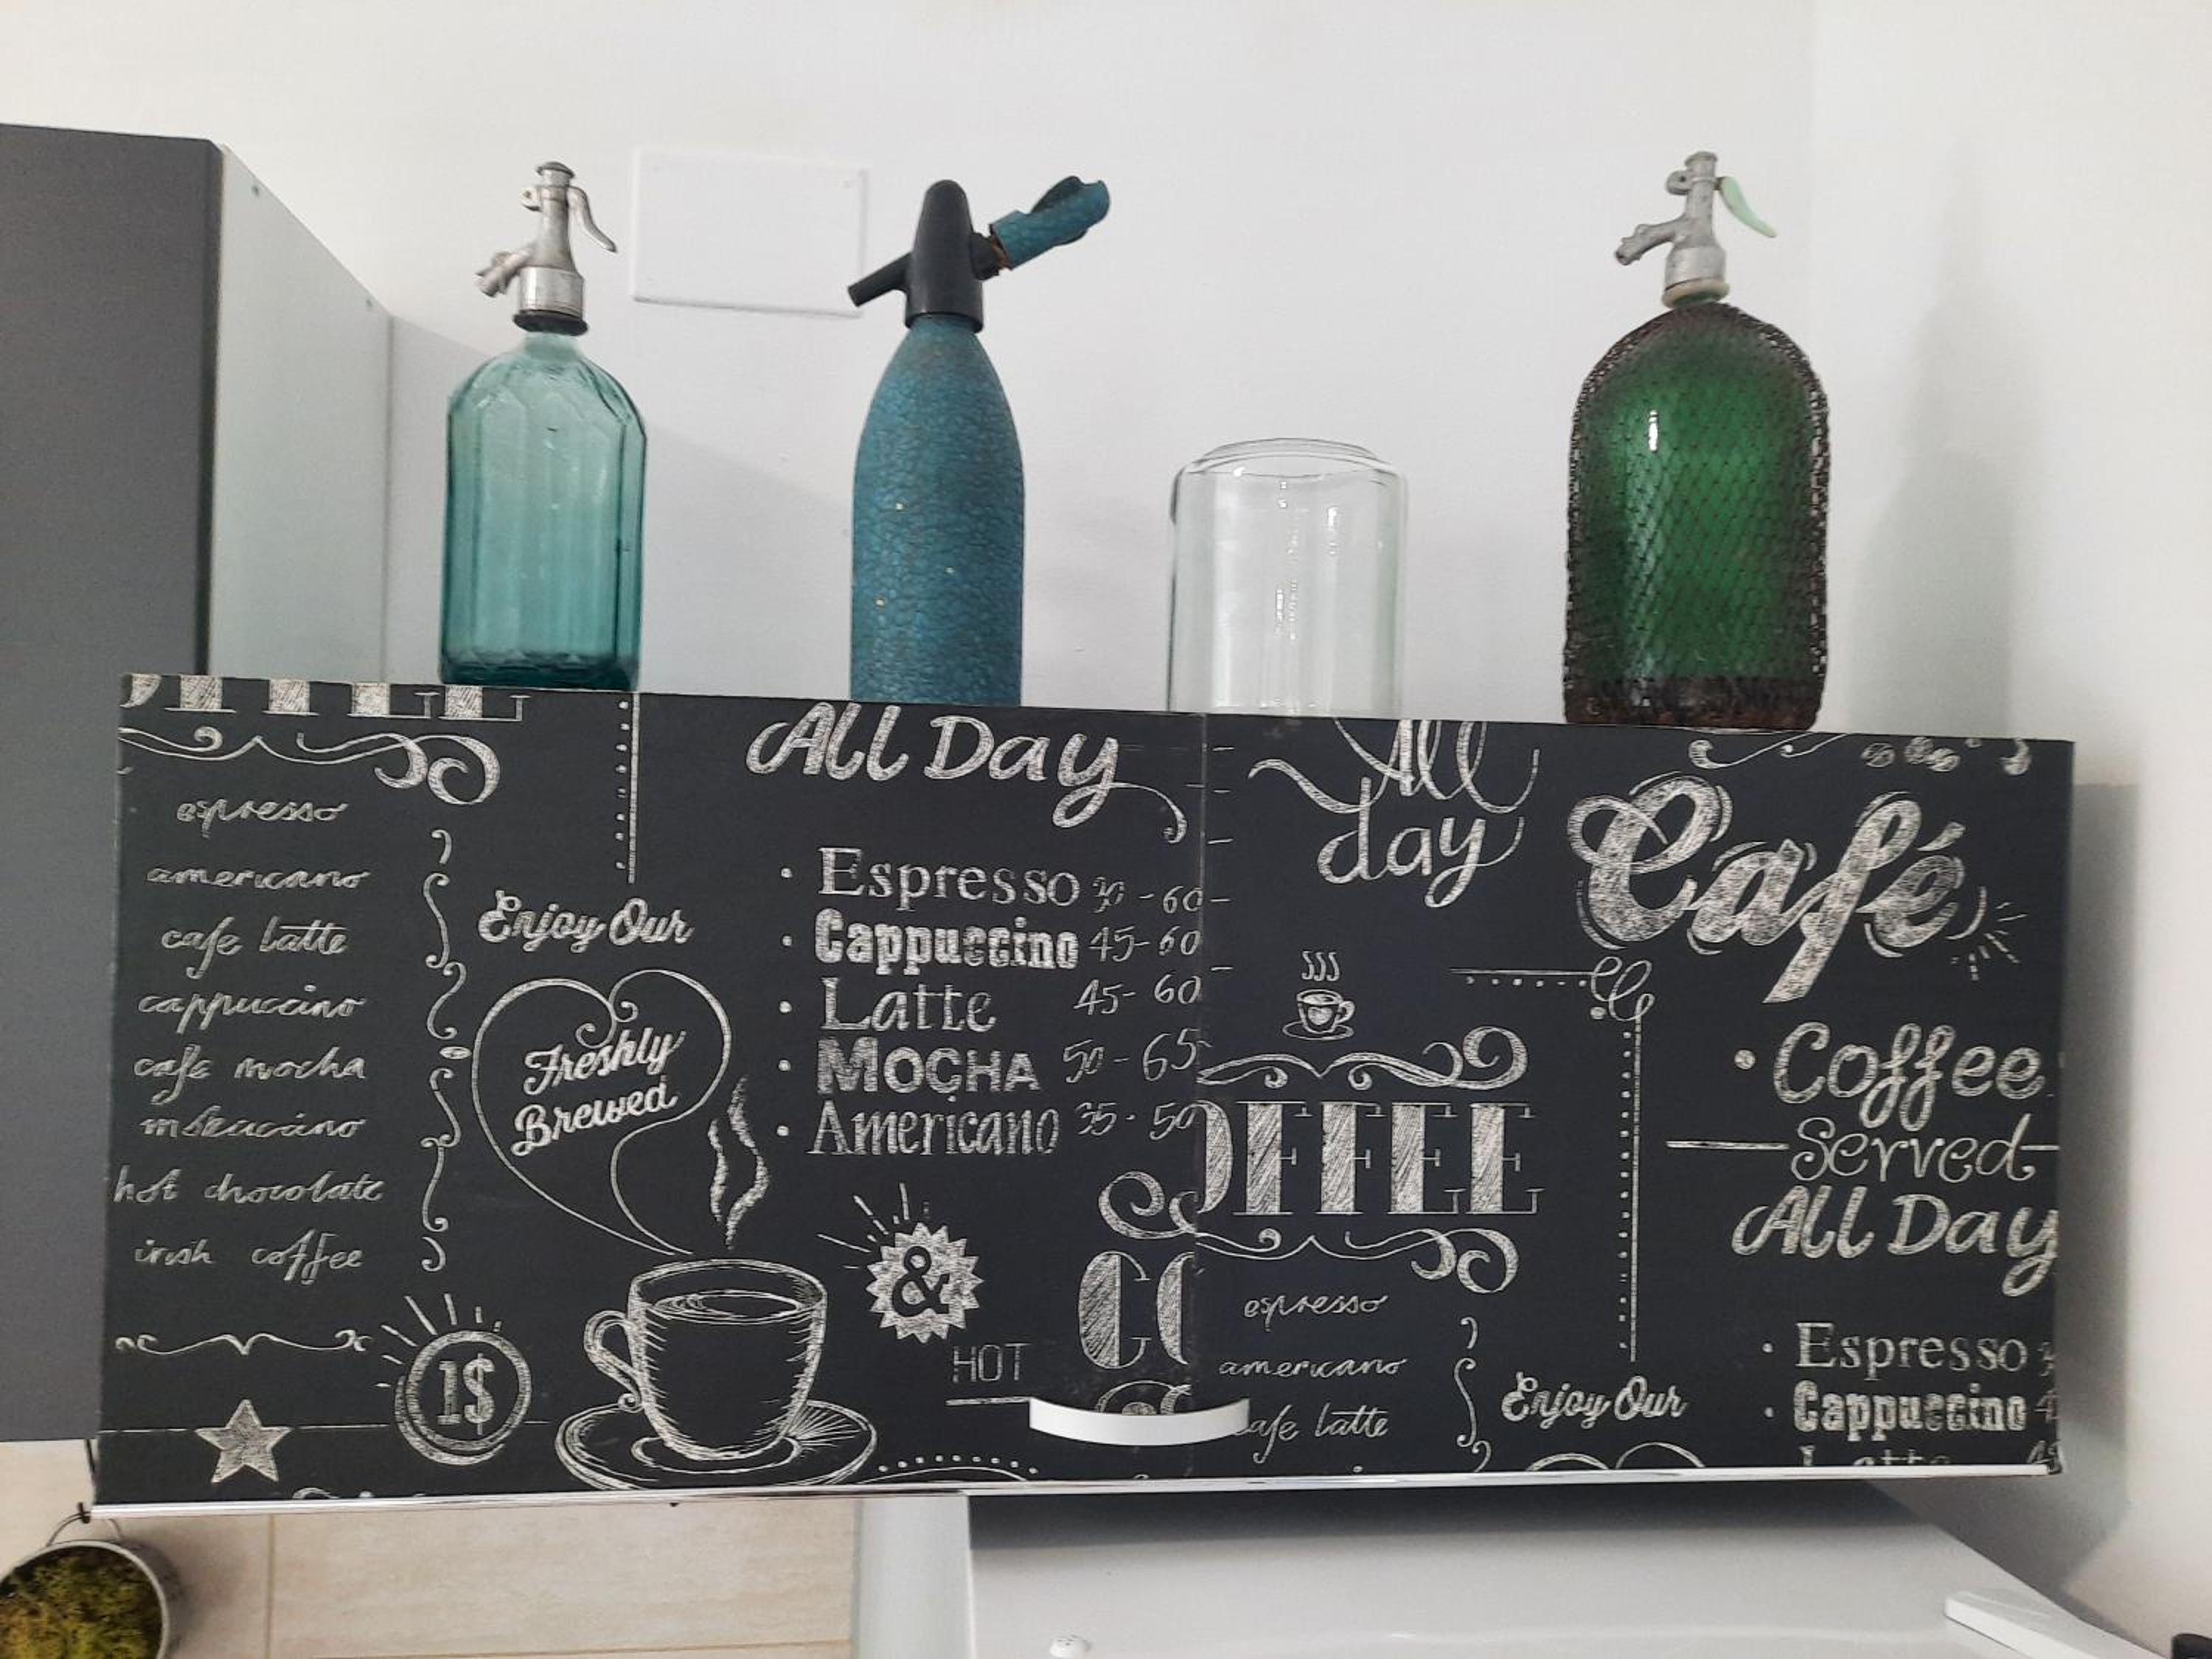 espresso
americano
cafe latte
cappuccino
cafe mocha
hot chocolate
irish coffee
1$
Enjoy Our
Freshly
Brewed
All Day
Espresso 30 - 60
Cappuccino 45- 60
Latte 45- 60
MOCHA 50 - 65
Americano 35 - 50
&
HOT
CO
All
day
OFFEE
espresso
americano
cafe latte
Enjoy Our
Café
Coffee
Served
All Day
Espresso
Cappuccino
Latte